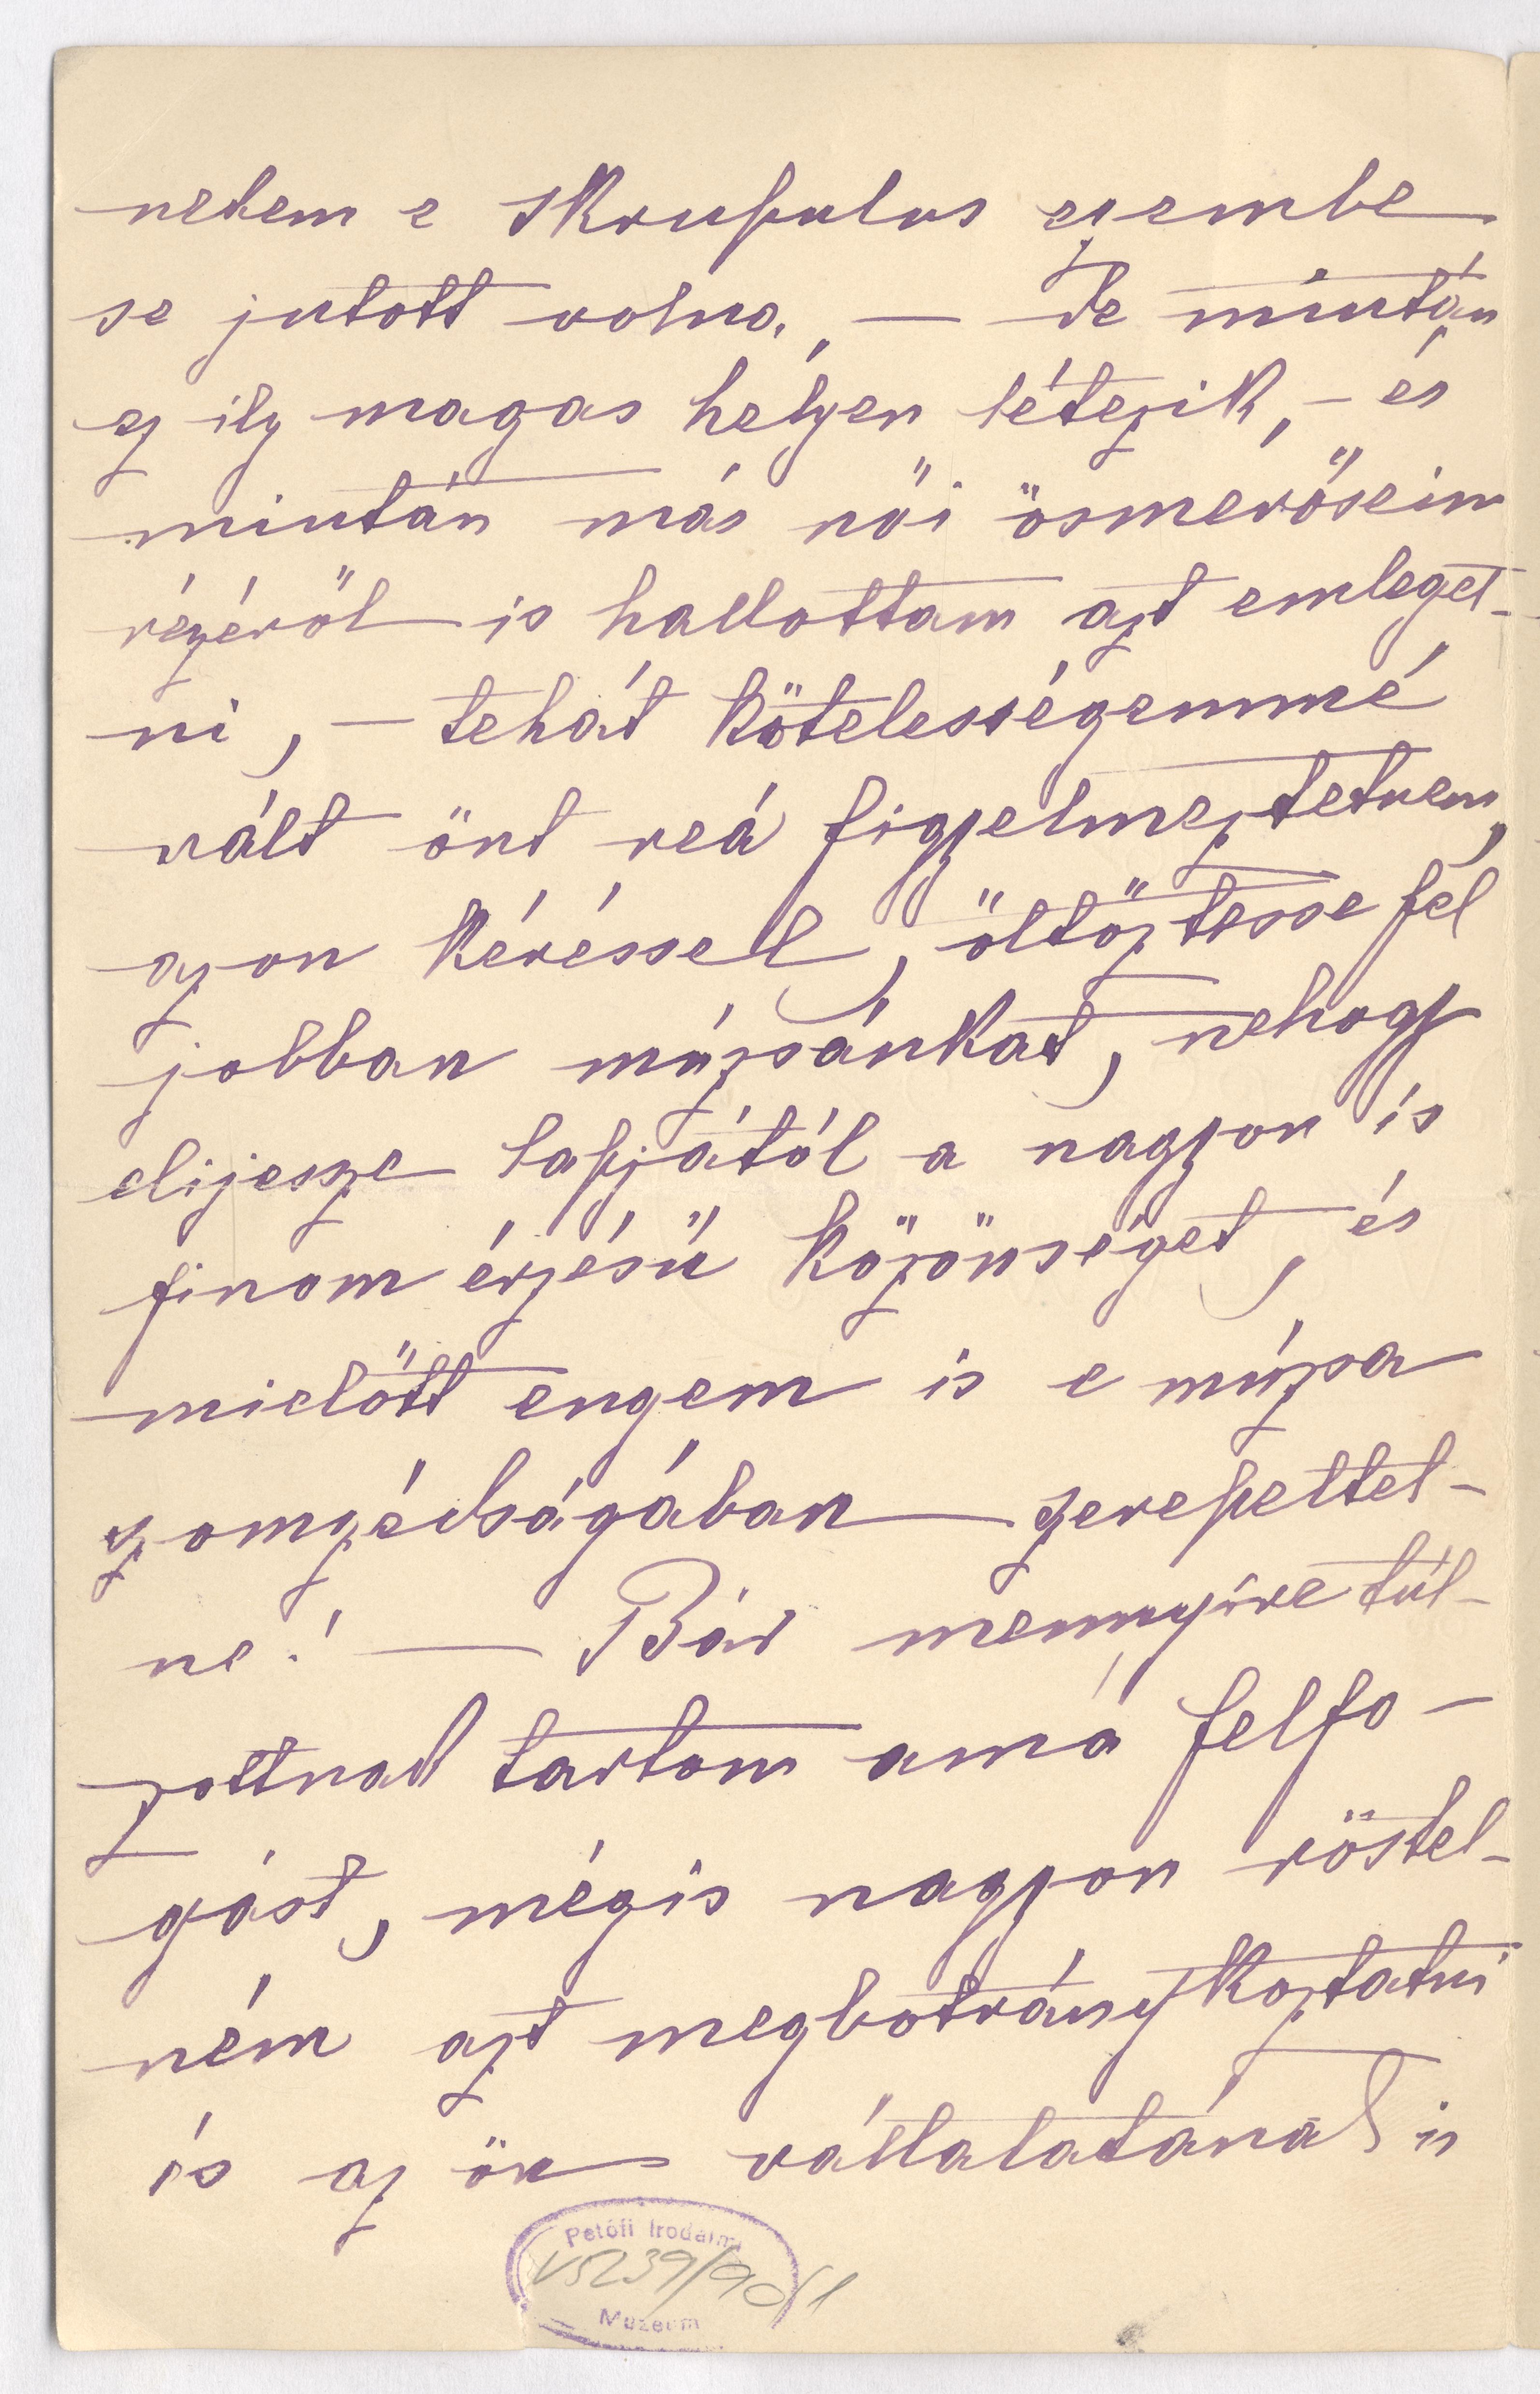 nekem e skrupulus eszembe
se jutott volna, — de miután
ez ily magas helyen létezik, – és
miután más női ösmerőseim
részéről is hallottam azt emleget-
ni, – tehát kötelességemmé
vált önt reá figyelmeztetnem,
azon kéréssel, öltöztesse fel
jobban múzsánkat, nehogy
elijessze lapjától a nagyon is
finom érzésű közönséget, és
mielőtt engem is e múzsa
szomszédságában szerepeltet-
ne! — Bár mennyire túl-
zottnak tartom ama felfo-
gást, mégis nagyon röstel-
ném azt megbotránykoztatni
és az ön vállalatának is
Petőfi Irodalmi
V5239/90/1
Múzeum